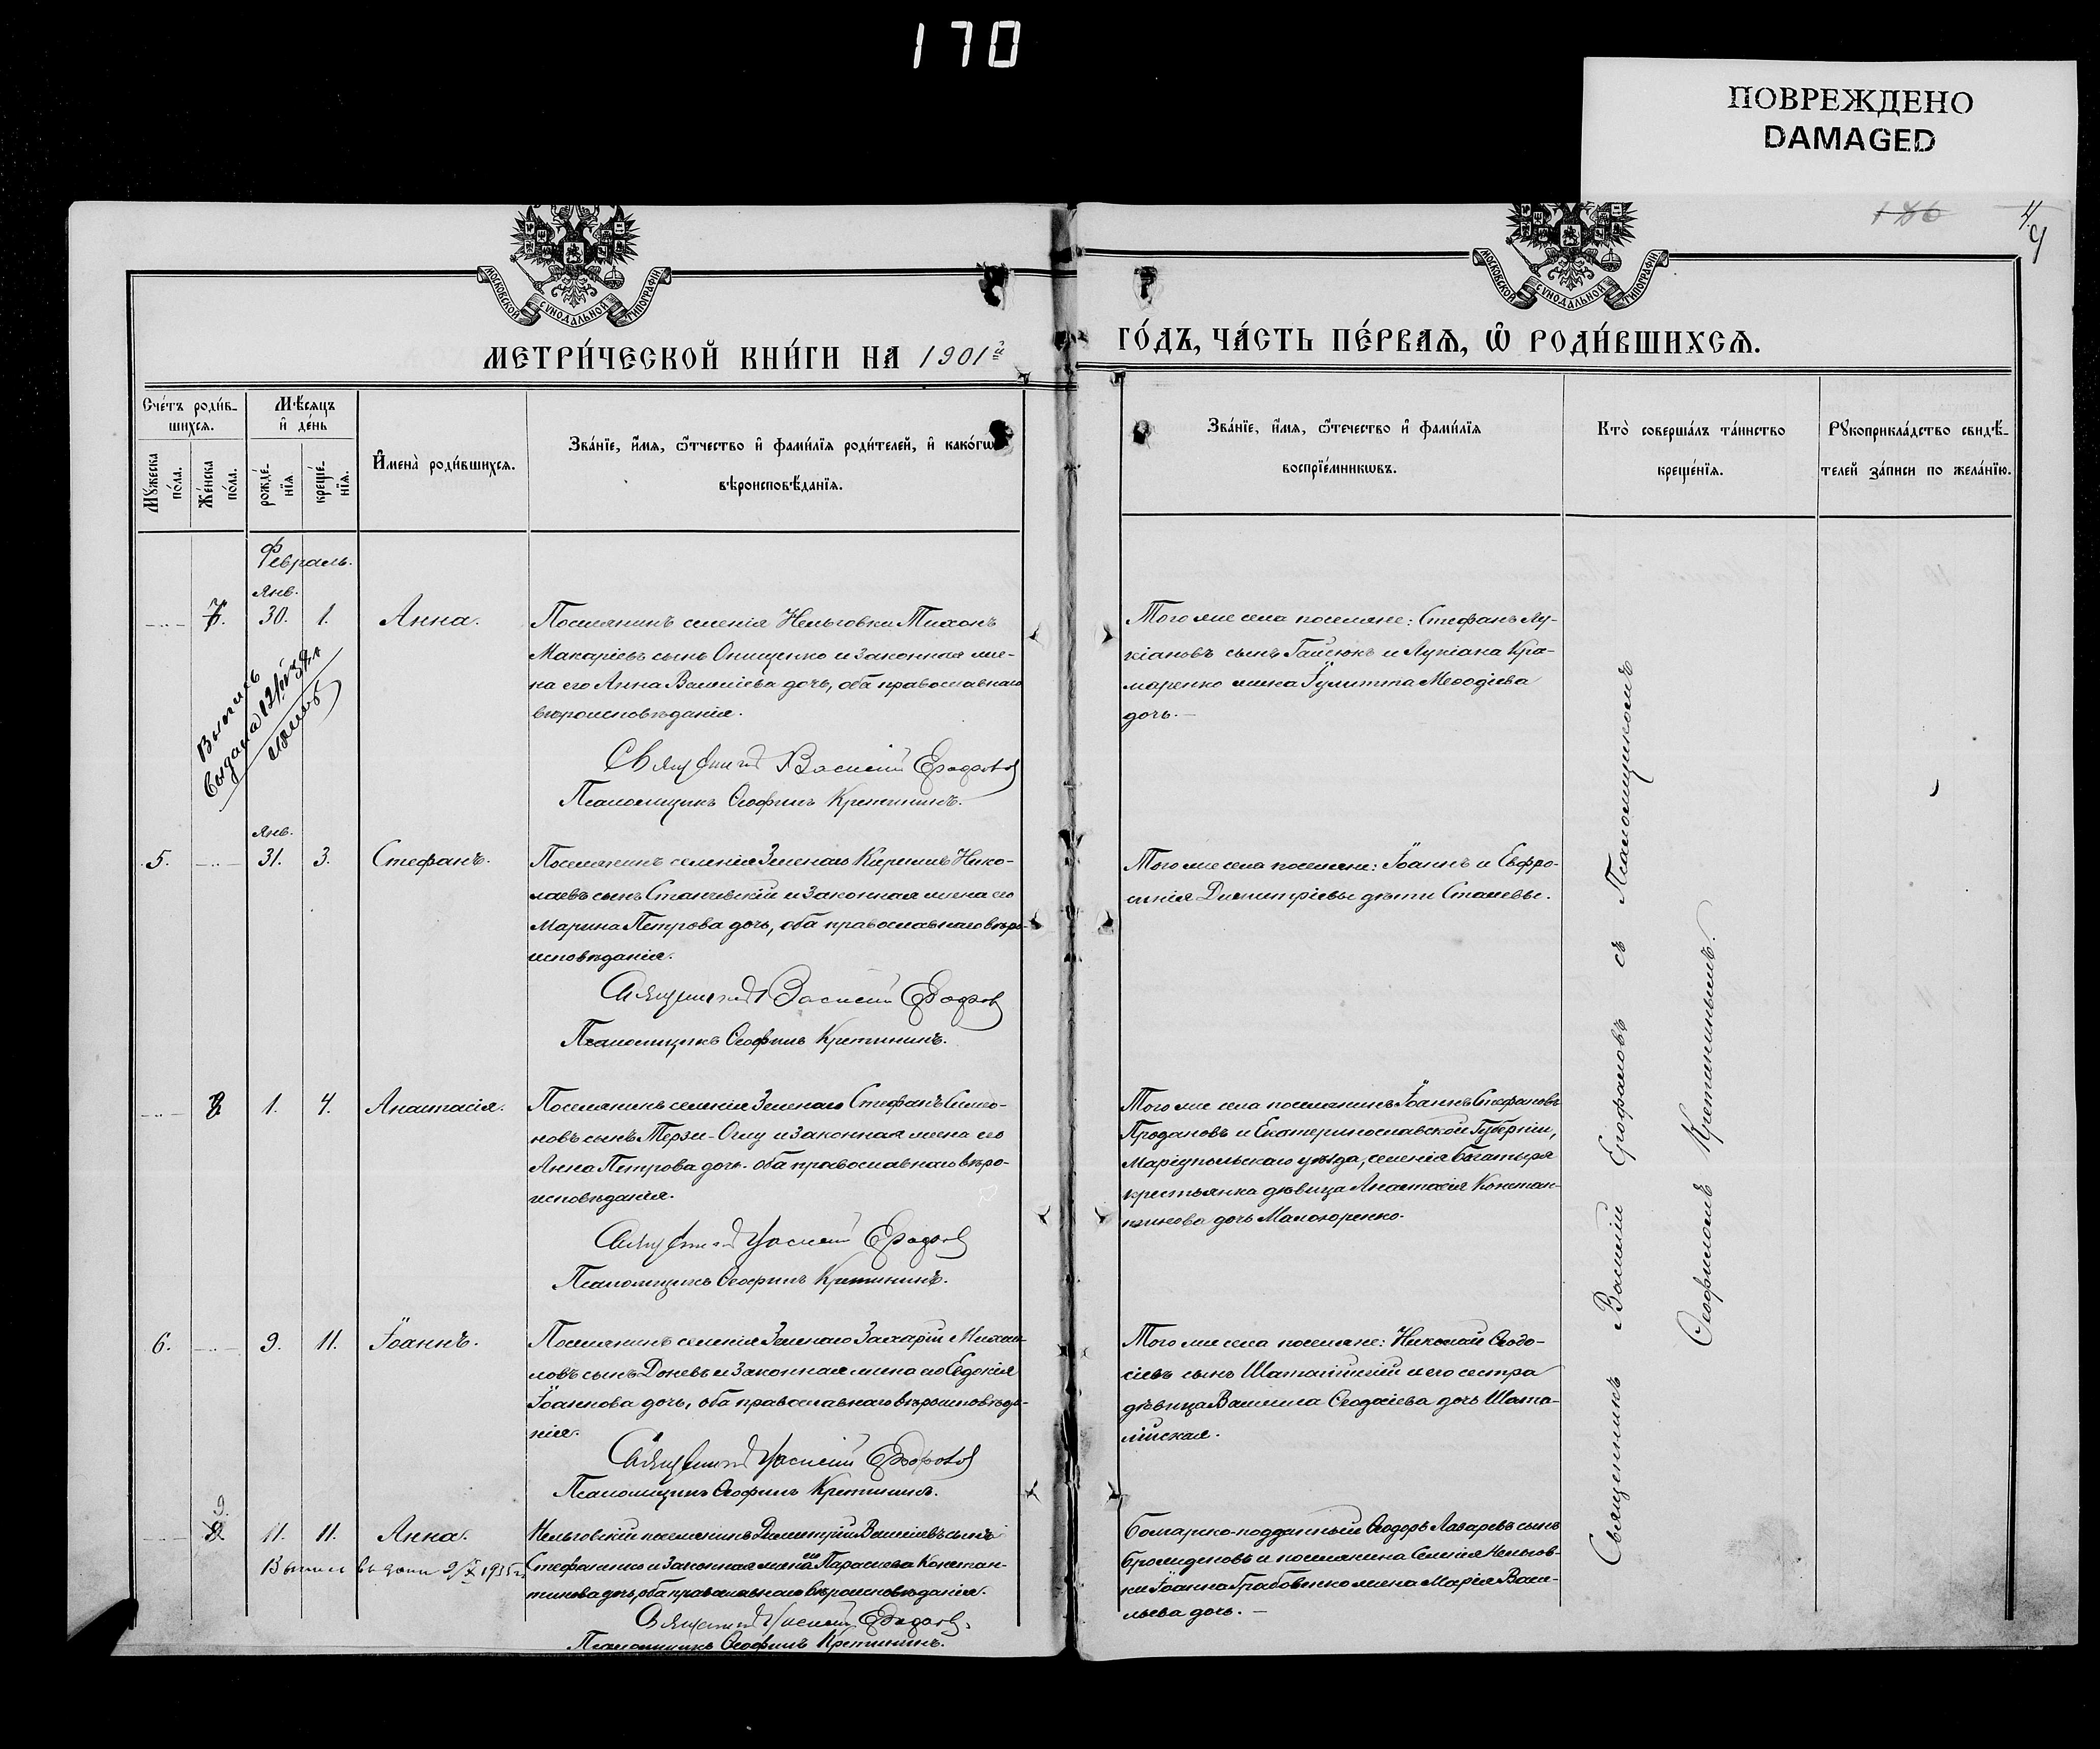 170
ПОВРЕЖДЕНО
DAMAGED
186
4
9
МОСКОВСКОЙ СѴНОДАЛЬНОЙ ТИПОГРАФІИ
МОСКОВСКОЙ СѴНОДАЛЬНОЙ ТИПОГРАФІИ
МЕТРИ́ЧЕСКОЙ КНИ́ГИ НА 1901й
ГО́ДЪ, ЧА́СТЬ ПЕ́РВАѦ, Ѡ҆ РОДИ́ВШИХСѦ.
Сче́тъ роди́в-
шихсѧ.
Мꙋ́жеска по́ла.
Же́нска по́ла.
Мѣ́сѧцъ
и҆ де́нь
рожде́-
нїѧ.
креще́-
нїѧ.
И҆мена̀ роди́вшихсѧ.
Зва́нїе, и҆́мѧ, ѻ҆́тчество и҆ фами́лїѧ роди́телей, и҆ како́гѡ
вѣроисповѣ́данїѧ.
Зва́нїе, и҆́мѧ, ѻ҆́течество и҆ фами́лїѧ
воспрїе́мникѡвъ.
Кто̀ соверша́лъ та́инство
креще́нїѧ.
Рꙋкоприкла́дство свидѣ́-
телей за́писи по жела́нїю.
Февраль.
Янв.
7. 30. 1. Анна.
Поселянинъ селенія Нельговки Тихонъ
Макаріевъ сынъ Онищенко и законная же-
на его Анна Васильева дочь, оба православнаго
вѣроисповѣданія.
Священникъ Василій Ерофаловъ
Псаломщикъ Ѳеофилъ Кретининъ.
Того же села поселяне: Стефанъ Лу-
кіановъ сынъ Гайсюкъ и Лукіана Кра-
маренко жена Іулитта Меѳодіева
дочь. —
Выпись
выдана
Янв.
5. 31. 3. Стефанъ.
Поселянинъ селенія Зеленаго Кириллъ Нико-
лаевъ сынъ Станчевскій и законная жена его
Марина Петрова дочь, оба православнаго вѣро-
исповѣданія.
Священникъ Василій Ерофаловъ
Псаломщикъ Ѳеофилъ Кретининъ.
Того же села поселяне: Іоаннъ и Евфро-
синія Димитріевы дѣти Сталевы.
8 1. 4. Анастасія.
Поселянинъ селенія Зеленаго Стефанъ Симео-
новъ сынъ Терзи-Оглу и законная жена его
Анна Петрова дочь. оба православнаго вѣро-
исповѣданія.
Священникъ Василій Ерофаловъ
Псаломщикъ Ѳеофилъ Кретининъ.
Того же села поселянинъ Іоаннъ Стефановъ
Продановъ и Екатеринославской Губерніи,
Маріупольскаго уѣзда, селенія Богатыря
крестьянка дѣвица Анастасія Констан-
тинова дочь
6. 9. 11. Іоаннъ.
Поселянинъ селенія Зеленаго Захарій Михаи-
ловъ сынъ Доневъ и законная жена его Евдокія
Іоаннова дочь, оба православнаго вѣроисповѣда-
нія.
Священникъ Василій Ерофаловъ
Псаломщикъ Ѳеофилъ Кретининъ.
Того же села поселяне: Николай Ѳеодо-
сіевъ сынъ и его сестра
дѣвица Василиса Ѳеодосіева дочь
9. 11. 11. Анна.
Выпись выдана 1935 г.
Нельговскій поселянинъ Димитрій Васильевъ сынъ
Стефаненко и законная жена его Параскева Констан-
тинова дочь, оба православнаго вѣроисповѣданія.
Священникъ Василій Ерофаловъ.
Псаломщикъ Ѳеофилъ Кретининъ.
Болгарско-подданный Ѳеодоръ Лазаревъ сынъ
и поселянина Селенія Нельгов-
ки Іоанна Грабовенко жена Марія Васи-
льева дочь. —
Священникъ Василій Ерофаловъ съ Псаломщикомъ
Ѳеофиломъ Кретининымъ.